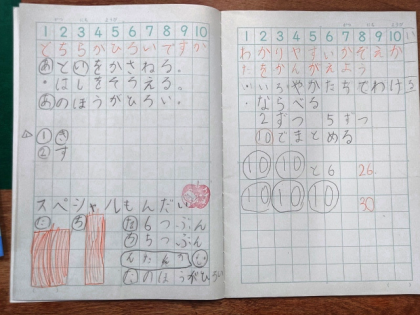 1 2 3 4 5 6 7 8 9 10
どちらがひろいですか
あといをかさねる。
・はしをそろえる。
あのほうがひろい。
① き
② す
スペシャルもんだい
た ち た6つぶん
ち5つぶん
かんたん
たのほうがひろい
1 2 3 4 5 6 7 8 9 10
わかりやすいかぞえか
たをかんがえよう
・いろやかたちでわける
・ならべる
2ずつ 5ずつ
10でまとめる
10 10 と6 26
10 10 10 30